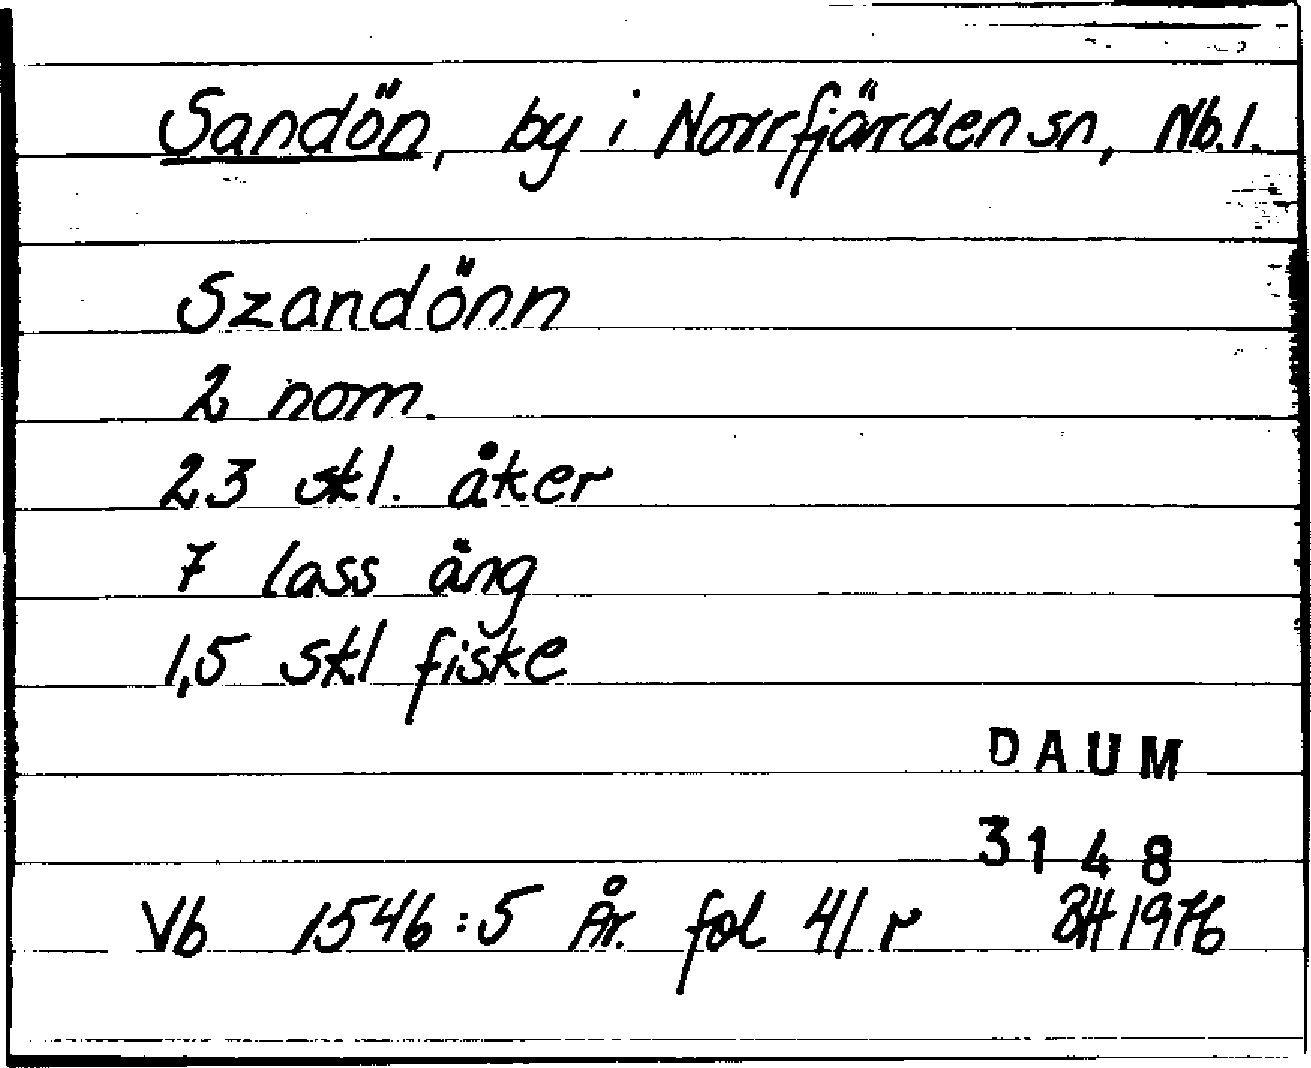 Sandön, by i Norrfjärden sn, Nb.l.
Szandönn
2 nom.
23 skl. åker
7 lass äng
1,5 skl fiske
DAUM
3148
Vb 1546:5 År. fol 41 r BH 1976